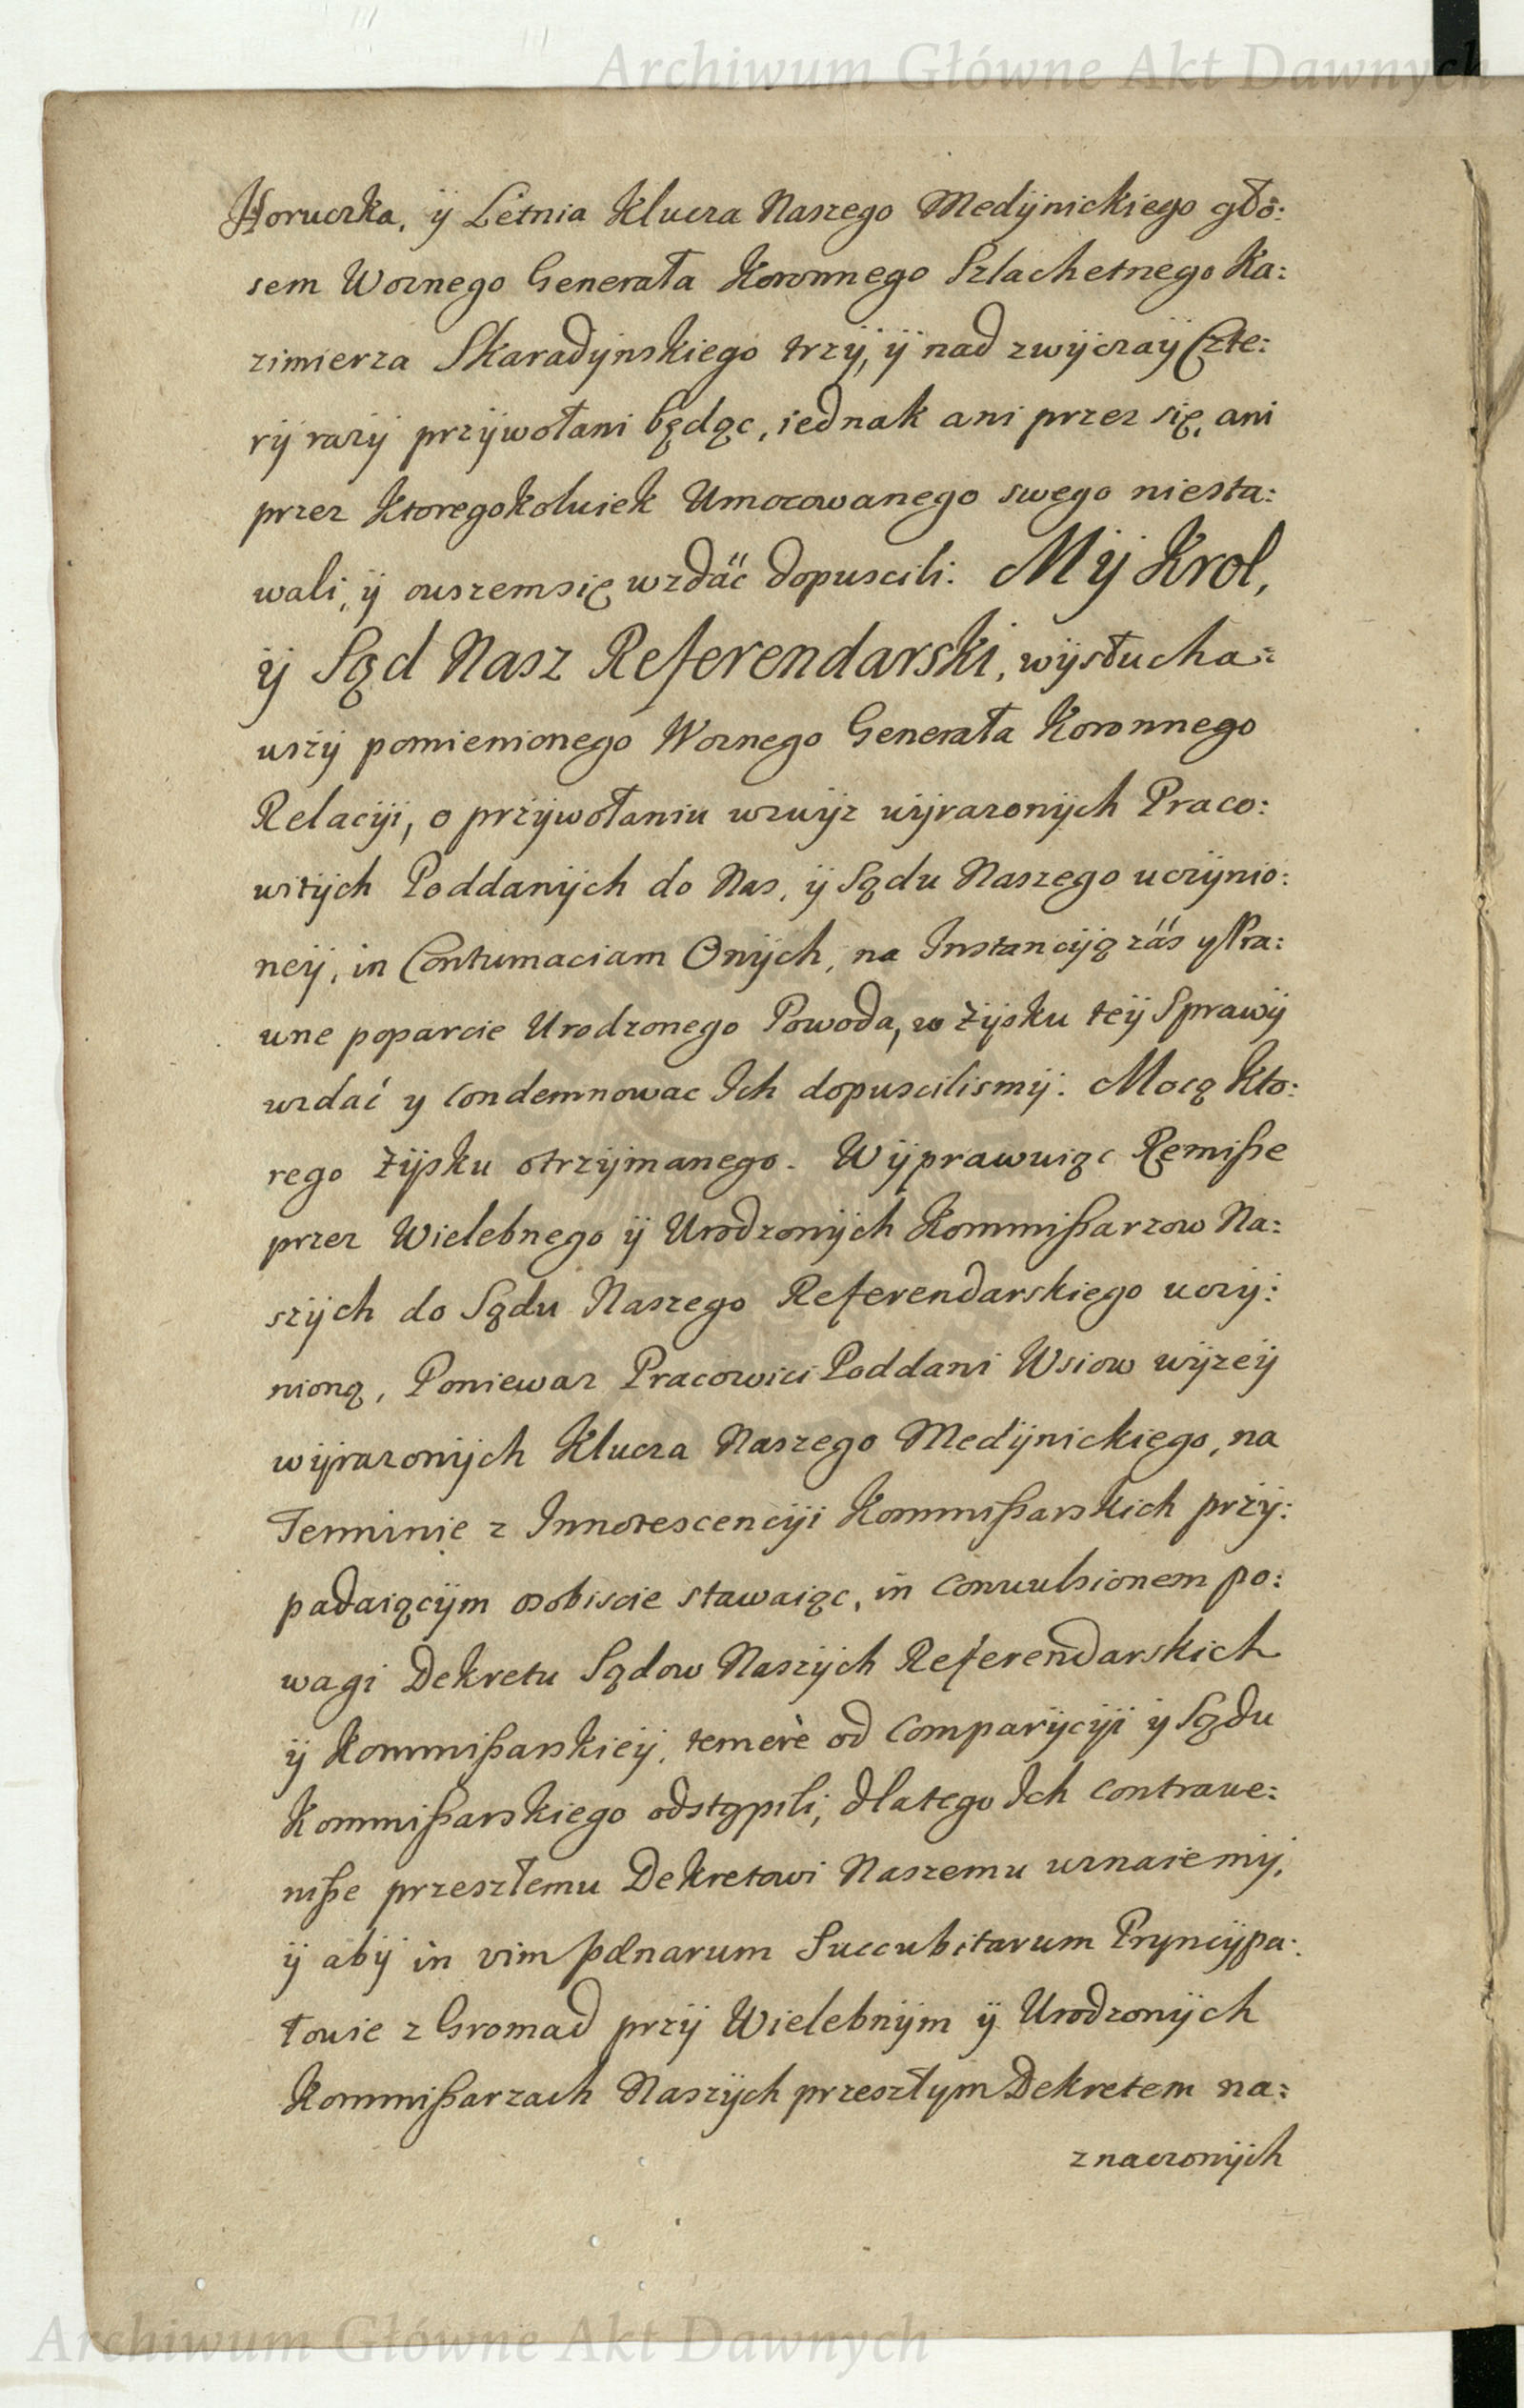 Archiwum Główne Akt Dawnych
Horuczka, ÿ Letnia Klucza Naszego Medÿnickiego gło:
sem Woznego Generała Koronnego Szlachetnego Ka:
zimierza Skaradÿnskiego trzÿ, ÿ nad zwÿczaÿ Czte:
rÿ razÿ przÿwołani będąc, iednak ani przez się, ani
przez ktoregokolwiek Umocowanego swego niesta:
wali, ÿ owszem się wzdać dopuscili: Mÿ Krol,
ÿ Sąd Nasz Referendarski, wÿsłucha:
wszÿ pomienionego Woznego Generała Koronnego
Relacÿi, o przÿwołaniu wzwÿz wÿrazonÿch Praco:
witÿch Poddanÿch do Nas, ÿ Sądu Naszego uczÿnio:
neÿ, in Contumaciam Onÿch, na Instancÿą zás y Pra:
wne poparcie Urodzonego Powoda, w Zÿsku teÿ Sprawÿ
wzdać y condemnowac Ich dopuscilismÿ: Mocą kto:
rego Zÿsku otrzÿmanego. Wÿprawuiąc Remiße
przez Wielebnego ÿ Urodzonÿch Kommißarzow Na:
szÿch do Sądu Naszego Referendarskiego uczÿ:
nioną, Poniewaz Pracowici Poddani Wsiow wÿzeÿ
wÿrazonÿch Klucza Naszego Medÿnickiego, na
Terminie z Innotescencÿi Kommißarskich przÿ:
padaiącÿm osobiscie stawaiąc, in convulsionem po:
wagi Dekretu Sądow Naszÿch Referendarskich
ÿ Kommißarskieÿ, temerè od comparÿcÿi ÿ Sądu
Kommißarskiego odstąpili, dlatego Ich contrawe:
niße przeszłemu Dekretowi Naszemu uznaiemÿ,
ÿ abÿ in vim pænarum Succubitarum Pryncÿpa:
łowie z Gromad przÿ Wielebnÿm ÿ Urodzonÿch
Kommißarzach Naszÿch przeszłym Dekretem na:
znaczonÿch
Archiwum Główne Akt Dawnych